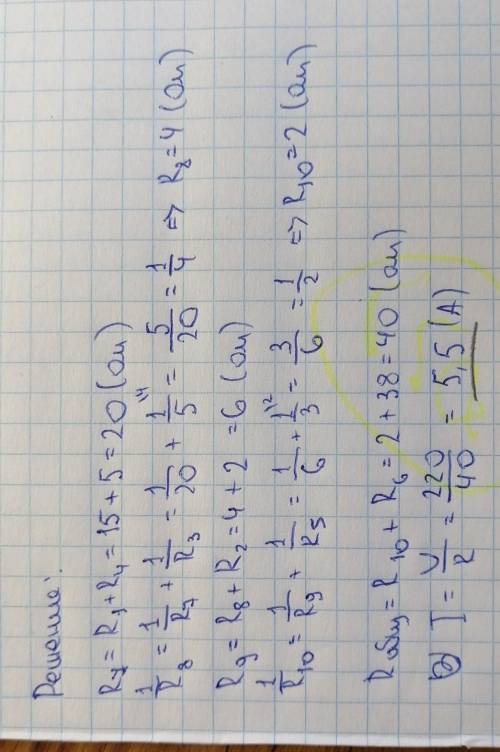 Решение:
R7 = R1 + R4 = 15 + 5 = 20 (Ом)
1/R8 = 1/R7 + 1/R3 = 1/20 + 1/5 \4 = 5/20 = 1/4 => R8 = 4 (Ом)
R9 = R8 + R2 = 4 + 2 = 6 (Ом)
1/R10 = 1/R9 + 1/R5 = 1/6 + 1/3 \2 = 3/6 = 1/2 => R10 = 2 (Ом)
Rобщ = R10 + R6 = 2 + 38 = 40 (Ом)
2) I = U/R = 220/40 = 5,5 (А)